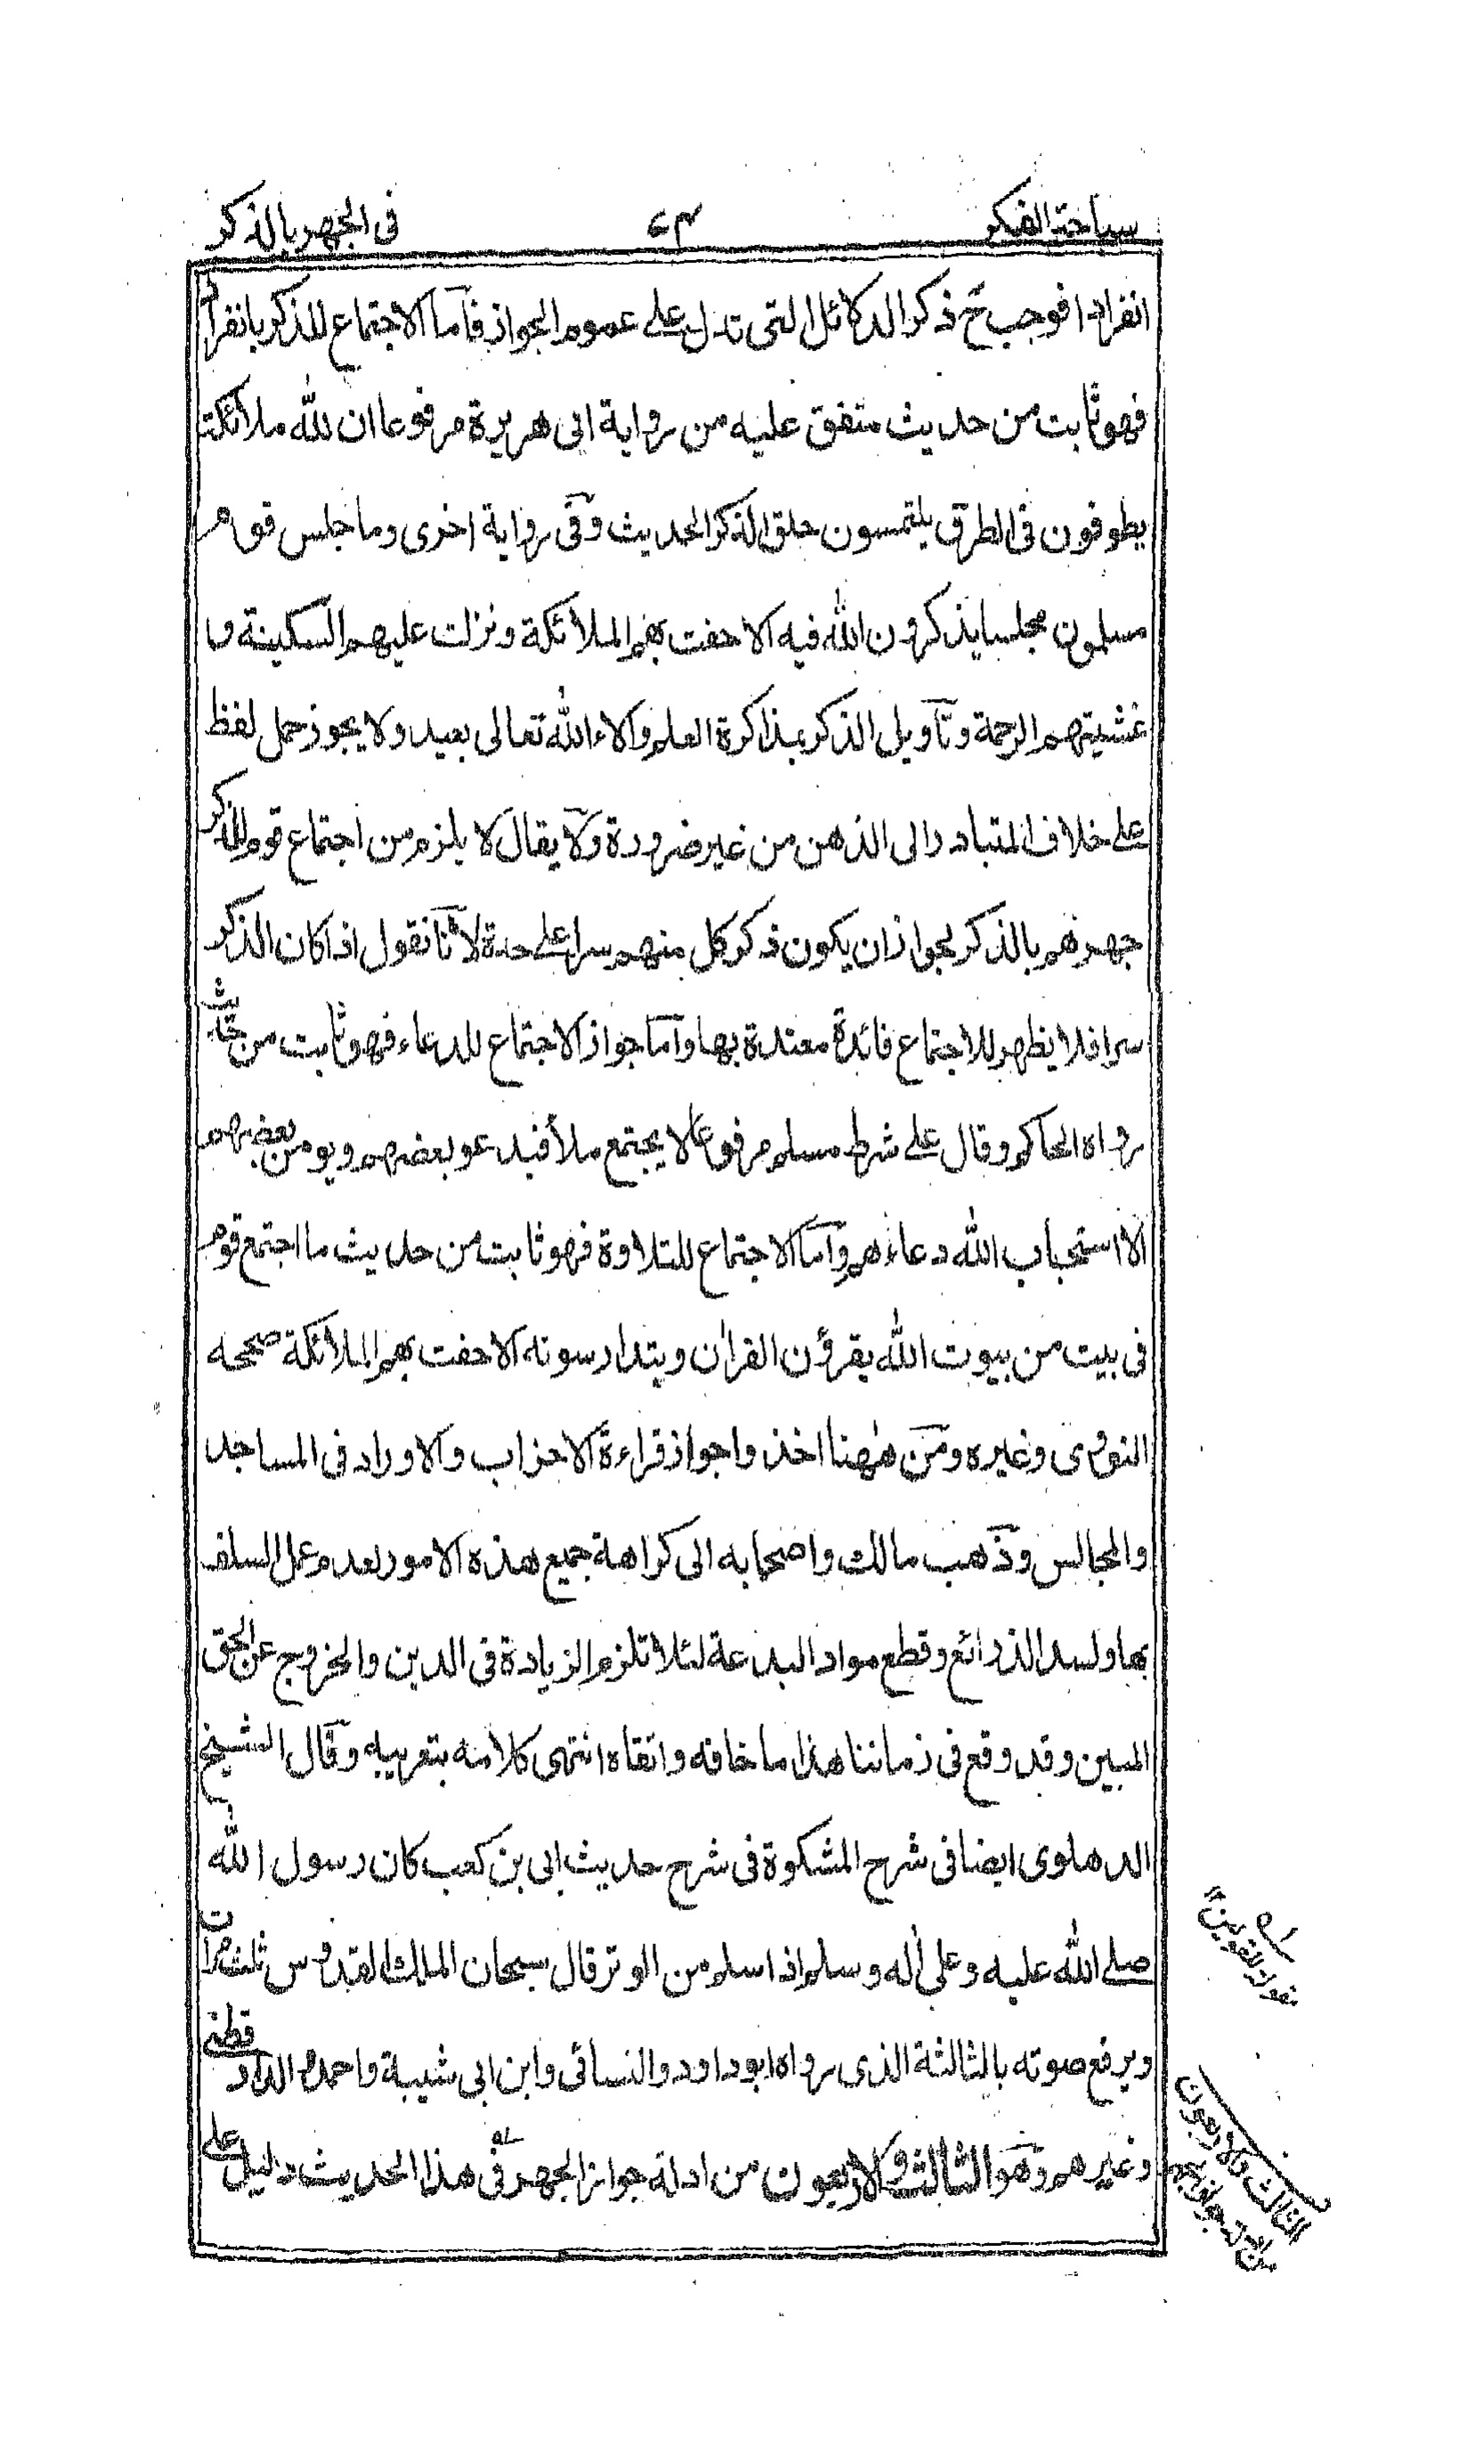 سباحة الفكر ٤٣ في الجهر بالذكر
انفرادا فوجب ح ذكر الدلائل التي تدل على عموم الجواز فاما الاجتماع للذكر بانفراد
فهو ثابت من حديث متفق عليه من رواية ابي هريرة مرفوعا ان لله ملائكة
يطوفون في الطرق يلتمسون حلق الذكر الحديث وفي رواية اخرى وما جلس قوم
مسلمون مجلسا يذكرون الله فيه الا حفت بهم الملائكة ونزلت عليهم السكينة و
غشيتهم الرحمة وتاويل الذكر بمذاكرة العلم والاء الله تعالى بعيد ولا يجوز حمل لفظ
على خلاف المتبادر الى الذهن من غير ضرورة ولا يقال لا يلزم من اجتماع قوم للذكر
جهرهم بالذكر لجواز ان يكون ذكر كل منهم سرا على حدة لانا نقول اذا كان الذكر
سرا فلا يظهر للاجتماع فائدة معتدة بها واما جواز الاجتماع للدعاء فهو ثابت من حديث
رواه الحاكم وقال على شرط مسلم مرفوعا لا يجتمع ملأ فيدعو بعضهم ويومن بعضهم
الا استجاب الله دعاءهم واما الاجتماع للتلاوة فهو ثابت من حديث ما اجتمع قوم
في بيت من بيوت الله يقرؤن القران ويتدارسونه الا حفت بهم الملائكة صححه
النووي وغيره ومن ههنا اخذوا جواز قراءة الاحزاب والاوراد في المساجد
والمجالس وذهب مالك واصحابه الى كراهة جميع هذه الامور لعدم عمل السلف
بها ولسد الذرائع وقطع مواد البدعة لئلا تلزم الزيادة في الدين والخروج عن الحق
المبين وقد وقع في زماننا هذا ما خافه واتقاه انتهى كلامه بتعريبه وقال الشيخ
الدهلوي ايضا في شرح المشكوة في شرح حديث ابي بن كعب كان رسول الله
صلى الله عليه وعلى اله وسلم اذا سلم من الوتر قال سبحان الملك القدوس ثلث مرات
ويرفع صوته بالثالثة الذي رواه ابو داود والنسائي وابن ابي شيبة واحمد والدارقطني
وغيرهم وهو الثالث والاربعون من ادلة جواز الجهر في هذا الحديث دليل على
الثالث والاربعون